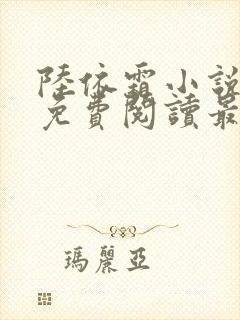 陸依霜小說
免費閱讀最
瑪麗亞